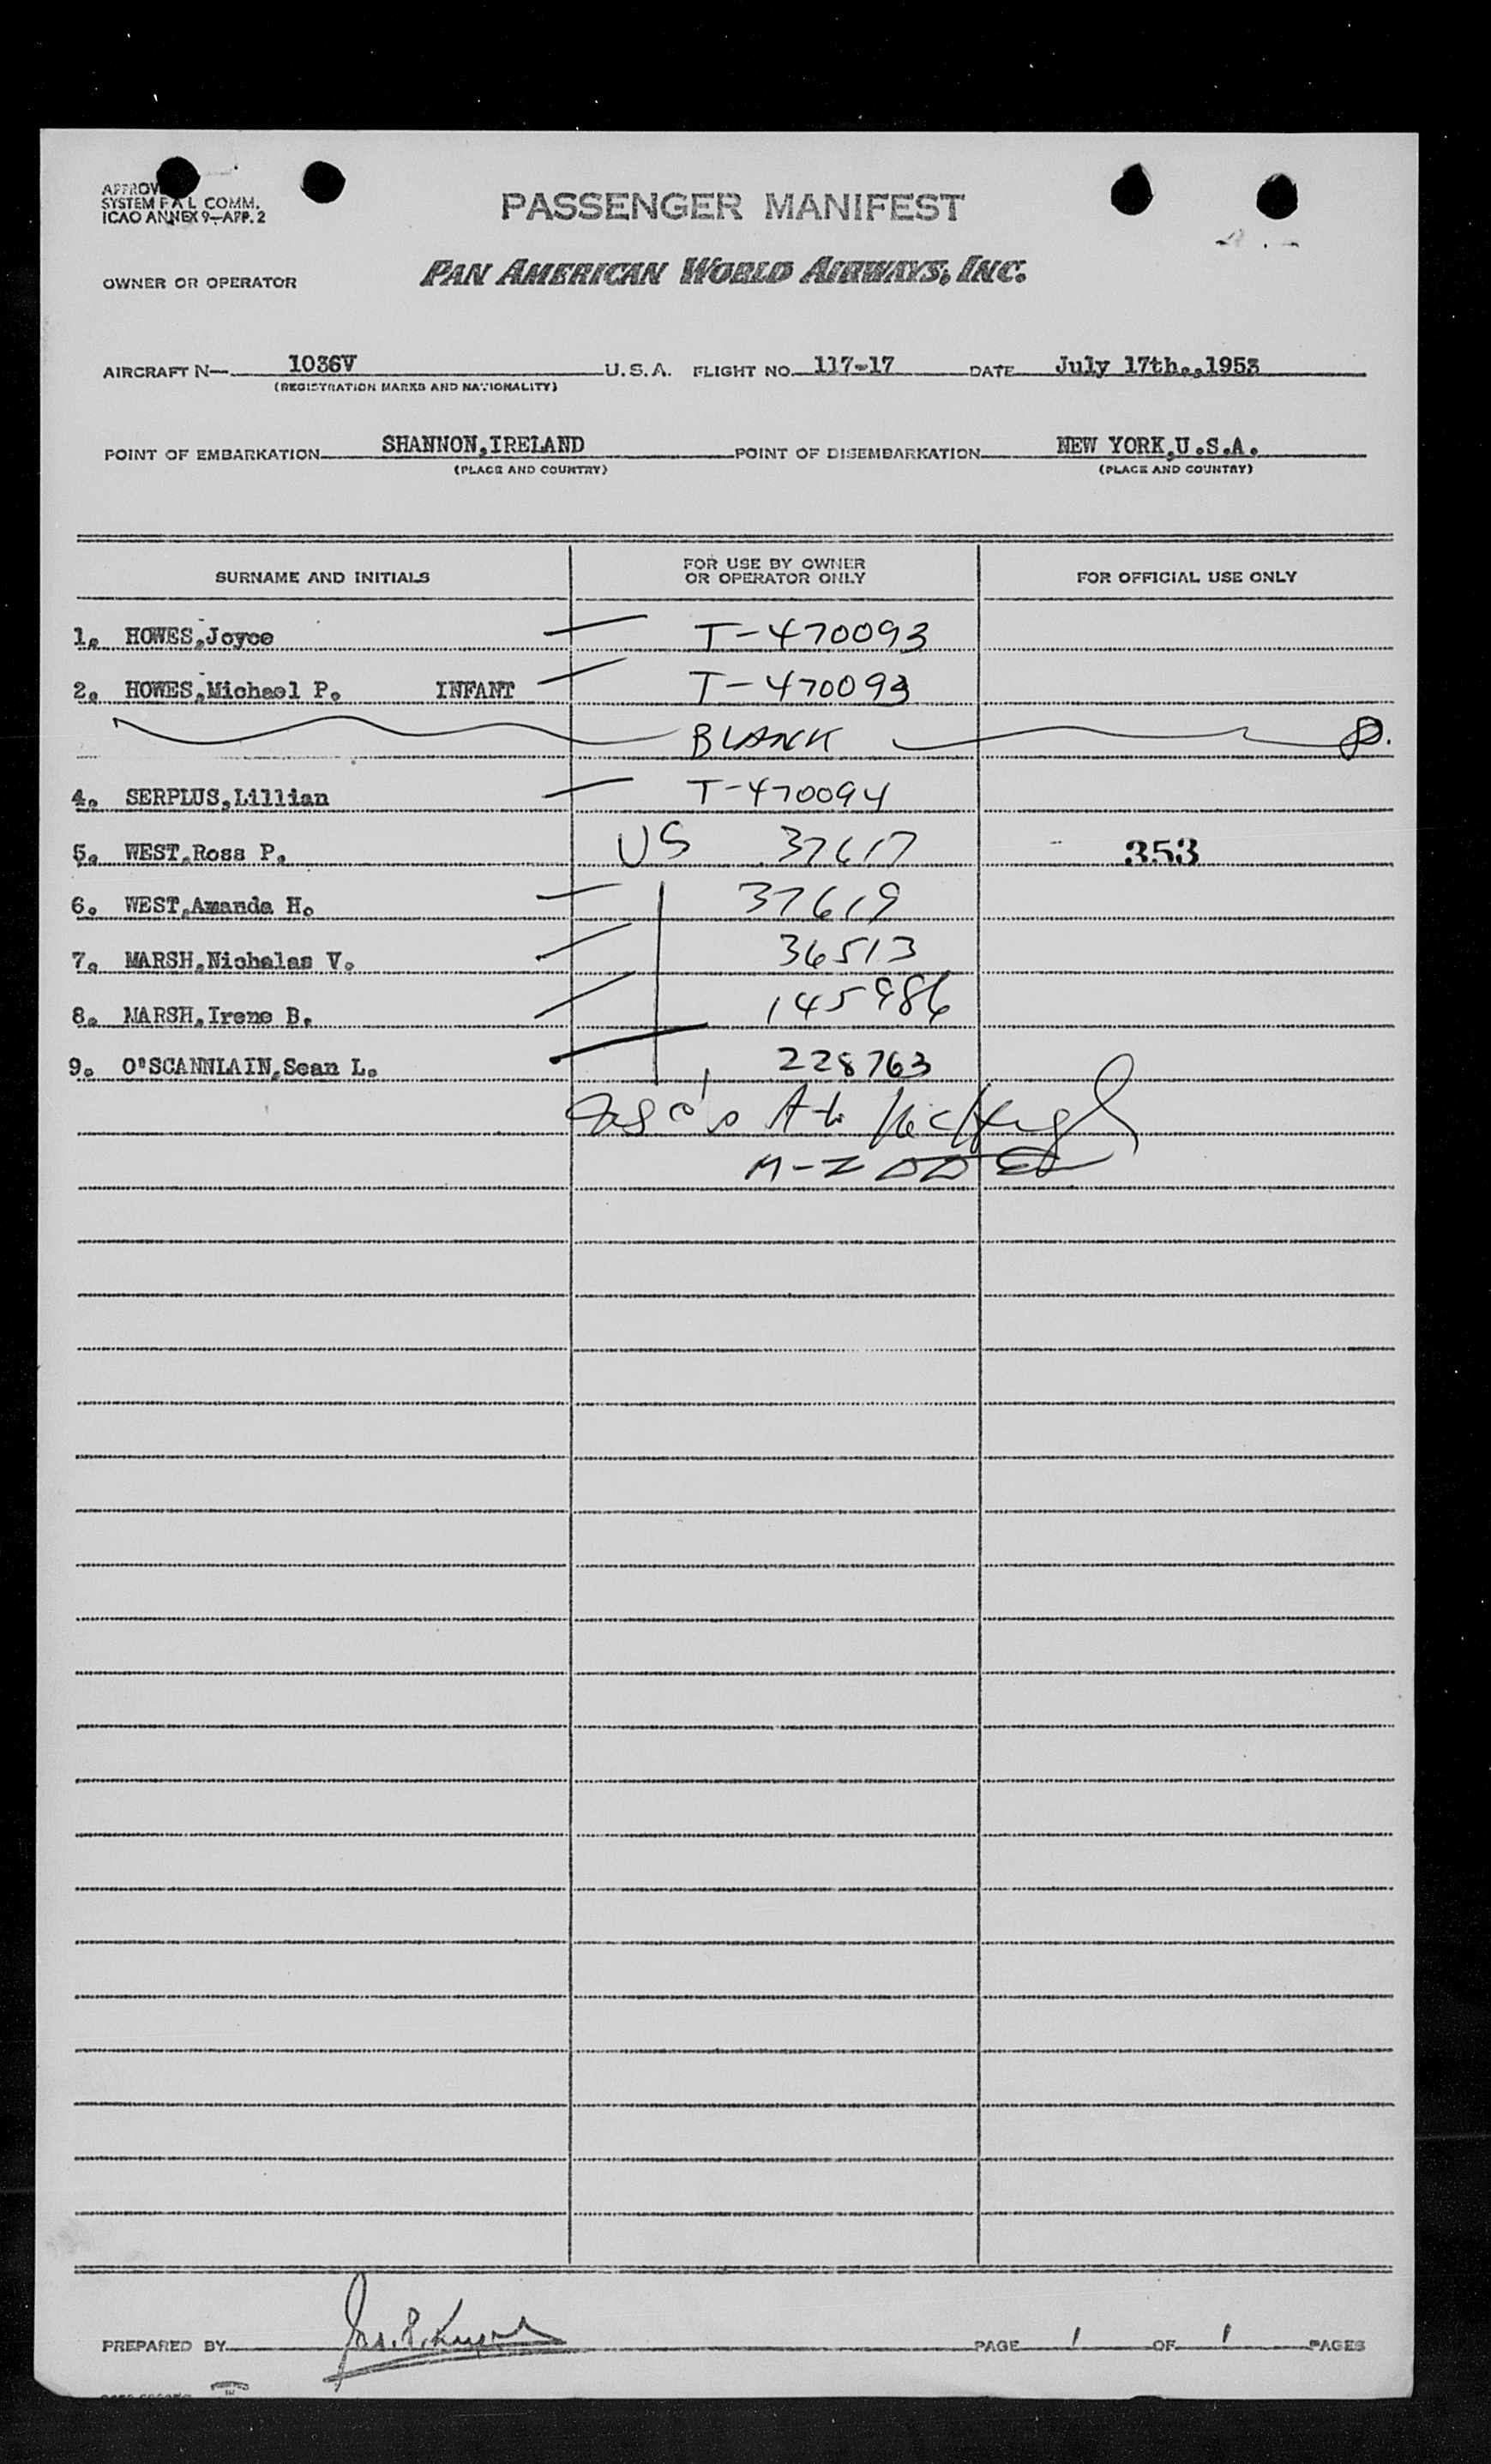 SYSTEM F A L COMM.
ICAO ANNEX 9—APP. 2
PASSENGER MANIFEST
OWNER OR OPERATOR
PAN AMERICAN WORLD AIRWAYS, INC.
AIRCRAFT N— 1036V U.S.A. FLIGHT NO. 117-17 DATE July 17th.,1953
(REGISTRATION MARKS AND NATIONALITY)
POINT OF EMBARKATION SHANNON,IRELAND POINT OF DISEMBARKATION NEW YORK,U.S.A.
(PLACE AND COUNTRY) (PLACE AND COUNTRY)
SURNAME AND INITIALS FOR USE BY OWNER OR OPERATOR ONLY FOR OFFICIAL USE ONLY
1. HOWES,Joyce T-470093
2. HOWES,Michael P. INFANT T-470093
BLANK
4. SERPLUS,Lillian T-470094
5. WEST,Ross P. US 37617 353
6. WEST,Amanda H. 37619
7. MARSH,Nicholas V. 36513
8. MARSH,Irene B. 145986
9. O'SCANNLAIN,Sean L. 228763
PREPARED BY PAGE 1 OF 1 PAGES